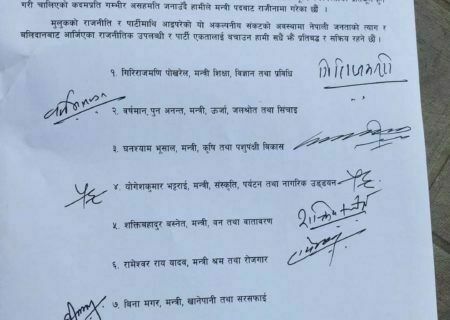 गरी चालिएको कदमप्रति गम्भीर असहमति जनाउँदै हामीले मन्त्री पदबाट राजीनामा गरेका छौं ।
मुलुकको राजनीति र पार्टीमाथि आइपरेको यो अकल्पनीय संकटको अवस्थामा नेपाली जनताको त्याग र
बलिदानबाट आर्जिएका राजनैतिक उपलब्धी र पार्टी एकतालाई बचाउन हामी सधैं झैं प्रतिबद्ध र सक्रिय रहने छौं ।
१. गिरिराजमणि पोखरेल, मन्त्री शिक्षा, विज्ञान तथा प्रविधि
२. वर्षमान पुन अनन्त, मन्त्री, ऊर्जा, जलश्रोत तथा सिंचाइ
३. घनश्याम भूसाल, मन्त्री, कृषि तथा पशुपंक्षी विकास
४. योगेशकुमार भट्टराई, मन्त्री, संस्कृति, पर्यटन तथा नागरिक उड्डयन
५. शक्तिबहादुर बस्नेत, मन्त्री, वन तथा वातावरण
६. रामेश्वर राय यादव, मन्त्री श्रम तथा रोजगार
७. बिना मगर, मन्त्री, खानेपानी तथा सरसफाई